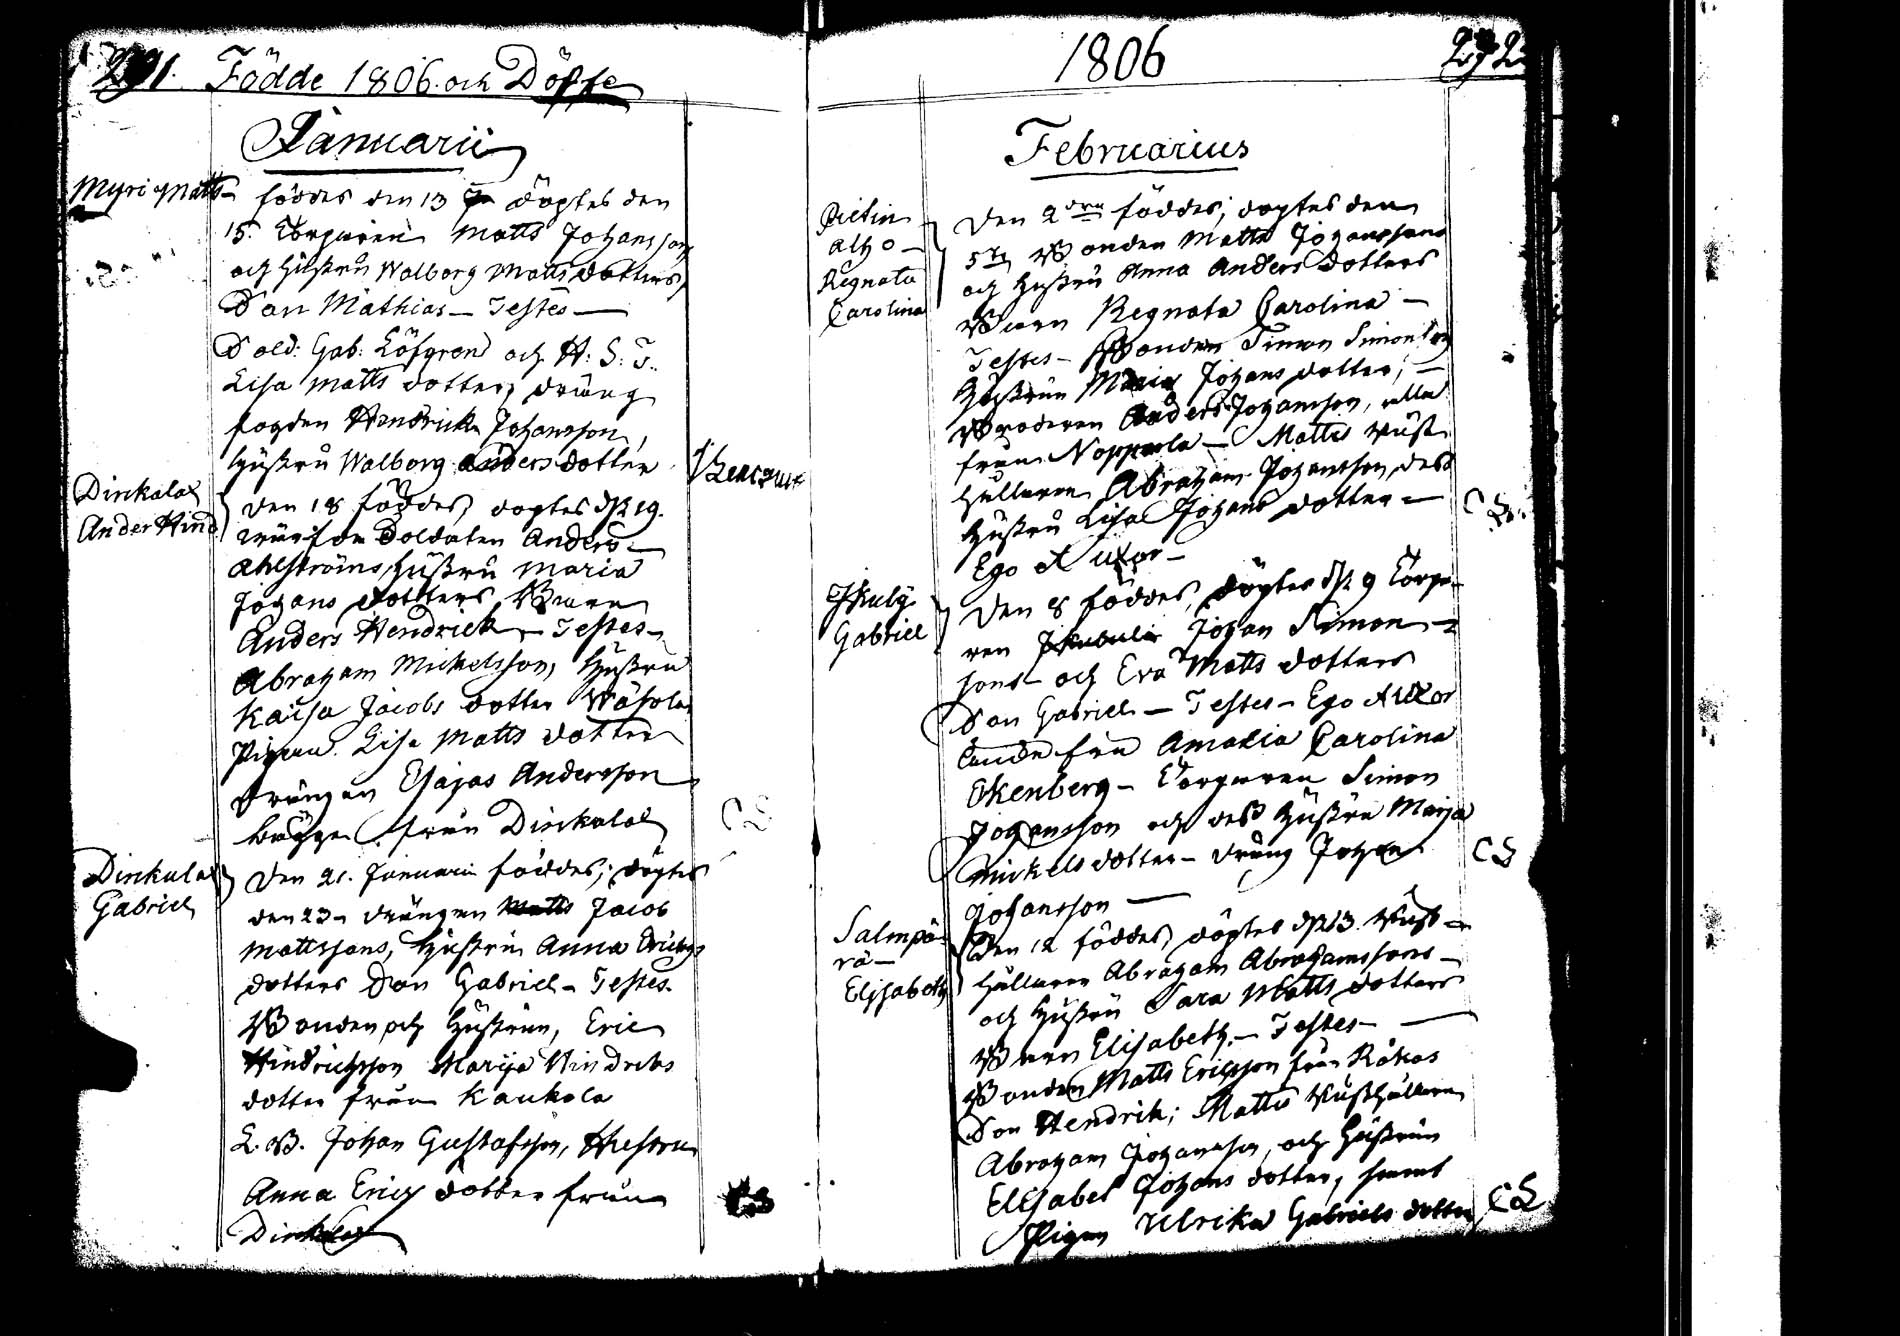 291. Födde 1806. och Döpte
Januarii
Myri Matts
föddes den 13 döptes den
15. Torparen Matts Johansson
och Hustru Walborg Matts dotters
Son Mathias – Testes –
Sold: Gab: Löfgren och H. S. T.
Lisa Matts dotter, dräng
fogden Hendrick Johansson,
Hustru Walborg Anders dotter
Dirikala
Ander Hind
den 18 föddes, doptes d. 19.
Soldaten Anders
Ahlströms Hustru Maria
Johans dotters Barn
Anders Hendrick – Testes –
Abraham Mickelsson, Hustru
Kaisa Jacobs dotter
Pigan Lisa Matts dotter
drängen Esajas Andersson
från Dirikala
Dirikala
Gabriel
Den 21. Januarii föddes; döptes
den 23 – drängen Jacob
Mattssons, Hustru Anna Erichs
dotters Son Gabriel – Testes.
Bonden och Hustrun, Eric
Hindrichsson Marija Hindrics
dotter från Kaukola
L. B. Johan Gustafsson, Hustru
Anna Erics dotter från
Dirikala
CS
1806
292
Februarius
Regnata
Carolina
Den 2dra föddes; doptes den
5te Bonden Matts Johanssons
och Hustru Anna Anders dotters
Barn Regnata Carolina –
Testes – Bonden Simon Simonson
Hustrun Maria Johans dotter; –
Brodren Anders Johansson, alla
från Nopperla – Matts
hållaren Abraham Johansson, dess
Hustru Lisa Johans dotter –
Ego & Uxor –
CS
Gabriel
Den 8 föddes, döptes d. 9 Torpa-
ren Johan Simon-
sons och Eva Matts dotters
Son Gabriel – Testes – Ego & Uxor
Amalia Carolina
Ekenberg – Torparen Simon
Johansson och dess Hustru Marja
Mickels dotter – dräng Johan
Johansson –
CS
Salmpä-
rä –
Elisabeth
Den 12 föddes, döptes d. 13.
hållaren Abraham Abrahamssons –
och Hustru Sara Matts dotters
Barn Elisabeth. – Testes –
Bonden Matts Ericsson från Råkas
Son Hendrik; Matts
Abraham Johansson, och Hustrun
Elisabet Johans dotter, samt
Pigan Ulrika Gabriels dotter
CS